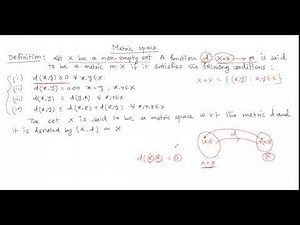 Metric space
Definition: Let X be a non-empty set. A function d: X×X → R is said
to be a metric on X if it satisfies the following conditions:
(i) d(x,y) ≥ 0 ∀ x,y ∈ X. X×X = {(x,y): x,y ∈ X}
(ii) d(x,y) = 0 ⇔ x = y, x,y ∈ X
(iii) d(x,y) = d(y,x) ∀ x,y ∈ X
(iv) d(x,y) ≤ d(x,z) + d(z,y) ∀ x,y,z ∈ X
The set X is said to be a metric space w.r.t the metric d and
it is denoted by (X, d) or X
d
X×X
R